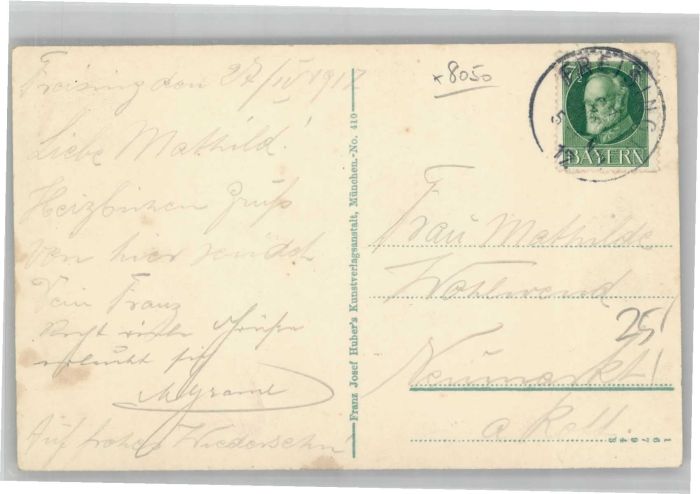 Freising den 27/IV 1917
Liebe Mathild!
Herzlichen Gruß
von hier sendet
Dein Franz
Recht viele Grüße
erlaubt sich
Auf frohes Wiedersehn!
Franz Josef Huber's Kunstverlagsanstalt, München.-No. 410
*8050
FREISING
BAYERN
Frau Mathilde
Wohlwend
25
Neumarkt
a Rott.
16794B